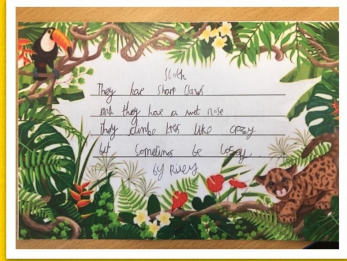 Sloth
They have sharp claws
and they have a wet nose
they climbe tres like crazy
but sometimes be lasy.
by Riley